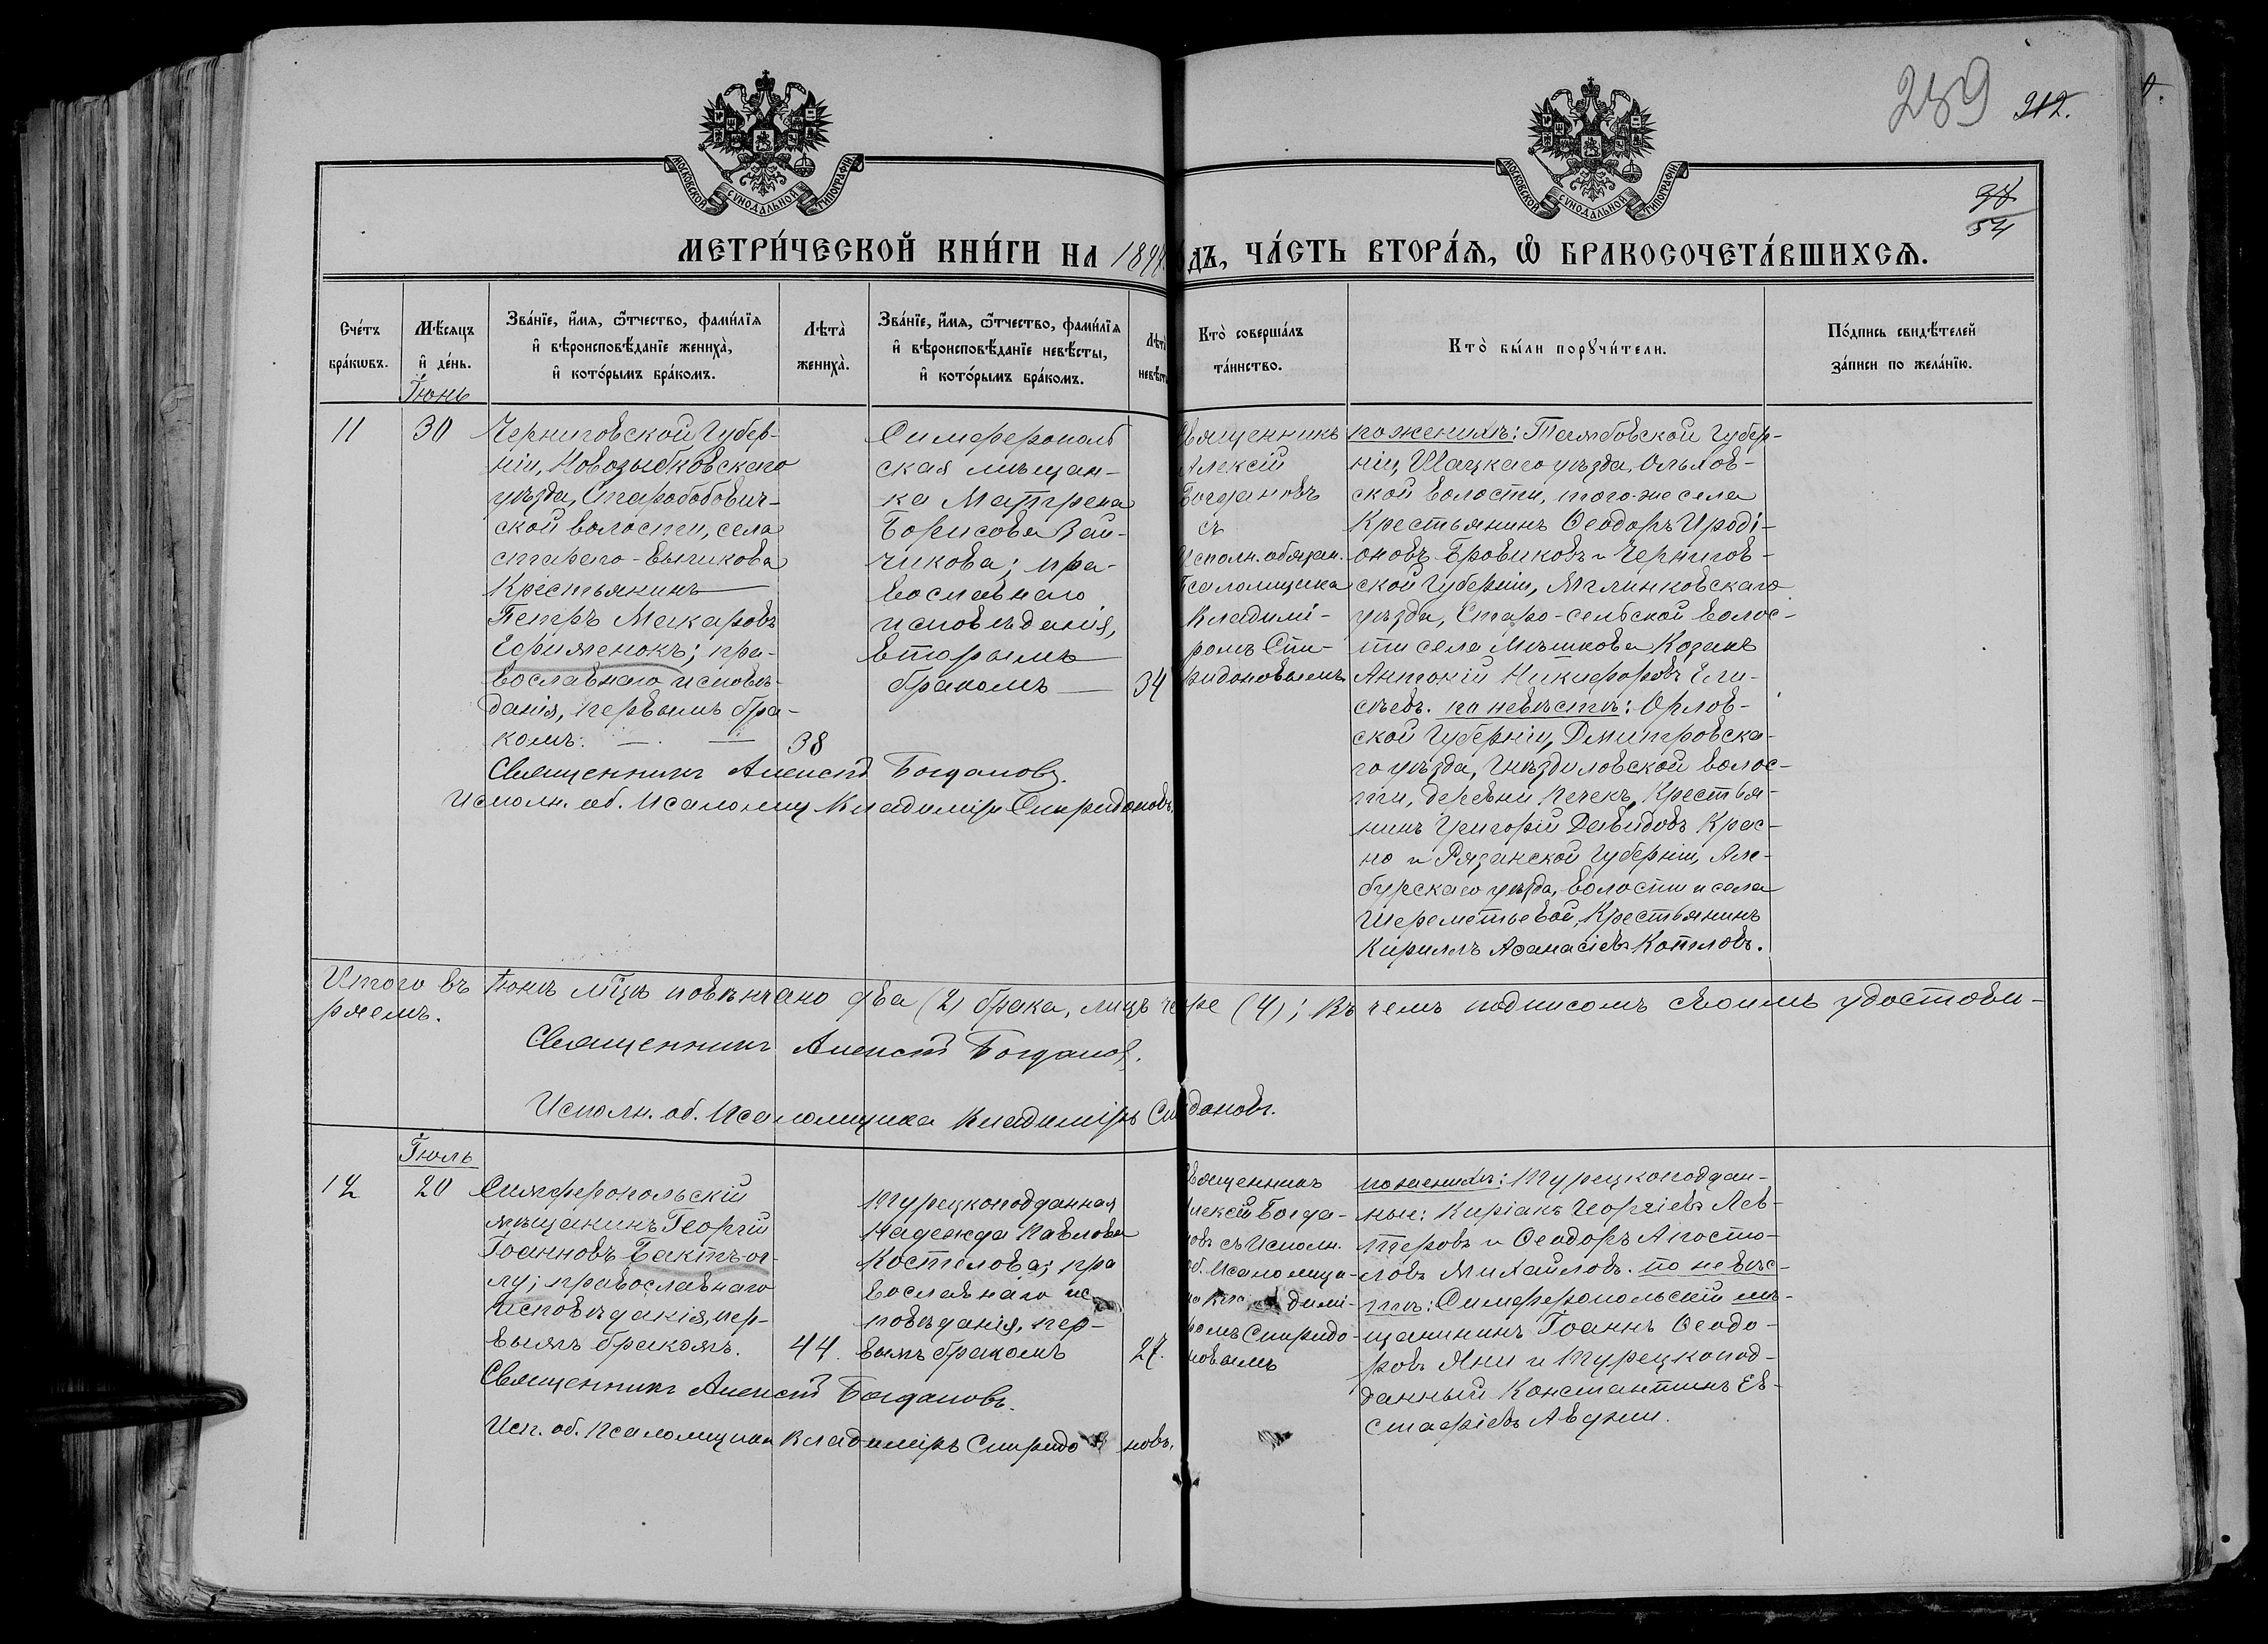 239 212.
МОСКОВСКОЙ СУНОДАЛЬНОЙ ТИПОГРАФІИ
МОСКОВСКОЙ СУНОДАЛЬНОЙ ТИПОГРАФІИ
54
МЕТРИ́ЧЕСКОЙ КНИ́ГИ НА 189
дъ, ЧА́СТЬ ВТОРА́Ѧ, Ѽ БРАКОСОЧЕТА́ВШИХСѦ.
Сче́тъ
бра́кѡвъ.
Мѣ́сяцъ
и҆ де́нь.
Іюнь
Зва́нїе, и҆́мѧ, ѻ҆́тчество, фами́лїѧ
и҆ вѣроисповѣ́данїе жениха̀,
и҆ кото́рымъ бра́комъ.
Лѣта̀
жениха̀.
Зва́нїе, и҆́мѧ, ѻ҆́тчество, фами́лїѧ
и҆ вѣроисповѣ́данїе невѣ́сты,
и҆ кото́рымъ бра́комъ.
Лѣта
невѣст
Кто̀ соверша́лъ
та́инство.
Кто̀ бы́ли порꙋчи́тели.
По́дпись свидѣ́телей
за́писи по жела́нїю.
11
30
Черниговской Губер-
ніи, Новозыбковскаго
уѣзда, Старобобович-
ской волости, села
стараго-Вышкова
Крестьянинъ
Петръ Макаровъ
Ефименокъ; пра-
вославнаго исповѣ-
данія, первымъ бра-
комъ. — . —
38
Симферополь
ская мѣщан-
ка Матрена
Борисова Зай-
чикова; пра-
вославнаго
исповѣданія,
вторымъ
бракомъ —
34
Священникъ
Алексій
Богдановъ
съ
Исполн. обязан.
Псаломщика
Владимі-
ромъ Спи-
ридоновымъ
по женихѣ: Тамбовской Губер-
ніи, Шацкаго уѣзда, Ольхов-
ской волости, того-же села
Крестьянинъ Ѳеодоръ Иродi-
оновъ Бровиковъ и Чернигов-
ской Губерніи, Мглинковскаго
уѣзда, Старо-сельской волос-
ти села Мишкова Козакъ
Антоній Никифоровъ Ели-
сѣевъ. по невѣстѣ: Орлов-
ской Губерніи, Дмитровска-
го уѣзда, Гнѣздиловской волос-
ти, деревни Печекъ, Крестья-
нинъ Григорій Давидовъ Крас-
но и Рязанской Губерніи,
бурскаго уѣзда, волости и села
Шереметьевой, Крестьянинъ
Кириллъ Аѳанасіевъ Котловъ.
Священникъ Алексій Богдановъ.
Исполн. об. Псаломщ Владиміръ Спиридоновъ.
Итого въ Іюнѣ мѣцѣ повѣнчано два (2) брака, лицъ че ре (4); въ чемъ подписомъ своимъ удостовѣ-
ряемъ.
Священникъ Алексій Богдановъ.
Исполн. об. Псаломщика Владиміръ Спи доновъ.
Іюль
12
20
Симферопольскій
мѣщанинъ Георгій
Іоанновъ Бактъ-ог-
лу; православнаго
исповѣданія, пер-
вымъ бракомъ.
44.
Турецкоподданная
Надежда Павлова
Костелова; пра
вославнаго ис
повѣданія, пер-
вымъ бракомъ
27.
вященникъ
лексій Богда-
новъ съ Исполн.
об. Псаломщи-
ка Вла дими-
ромъ Спиридо-
новымъ
по женихѣ: Турецкоподдан-
ные: Киріакъ Георгіевъ Лев-
теровъ и Ѳеодоръ Апосто-
ловъ Михайловъ. по невѣс-
тѣ: Симферопольскій мѣ-
щанининъ Іоаннъ Ѳеодо-
ровъ Яни и Турецкопод-
данный Константинъ Ев-
стафіевъ Авджи.
Священникъ Алексій Богдановъ.
Исп. об. Псаломщика Владиміръ Спиридо новъ.